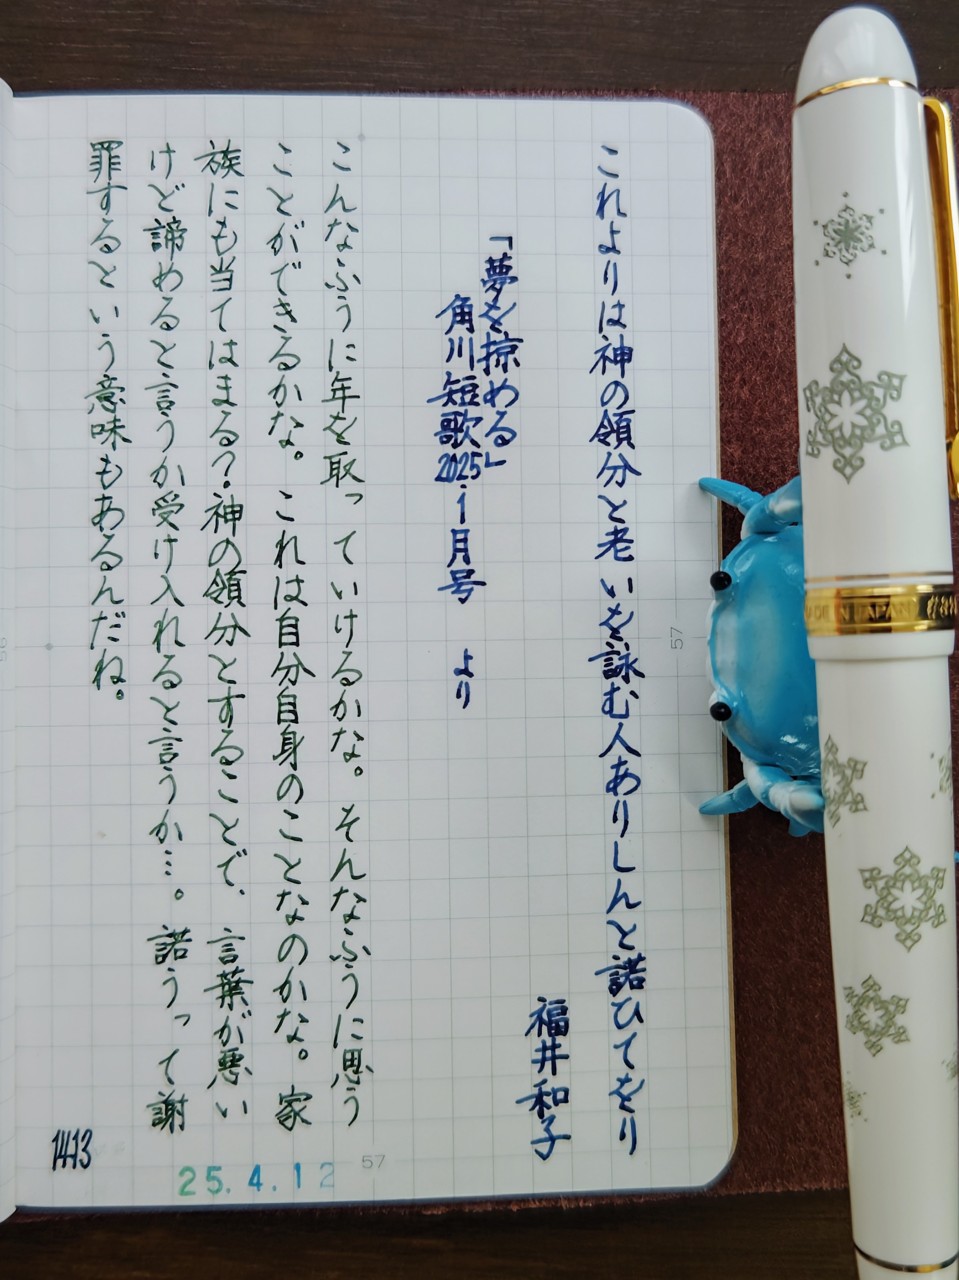 これよりは神の領分と老いを詠む人ありしんと諾ひてをり
福井和子
「夢を掠める」
角川短歌2025.1月号 より
こんなふうに年を取っていけるかな。そんなふうに思う
ことができるかな。これは自分自身のことなのかな。家
族にも当てはまる?神の領分とすることで、言葉が悪い
けど諦めると言うか受け入れると言うか…。諾うって謝
罪するという意味もあるんだね。
1413
25.4.12
57
57
MADE IN JAPAN